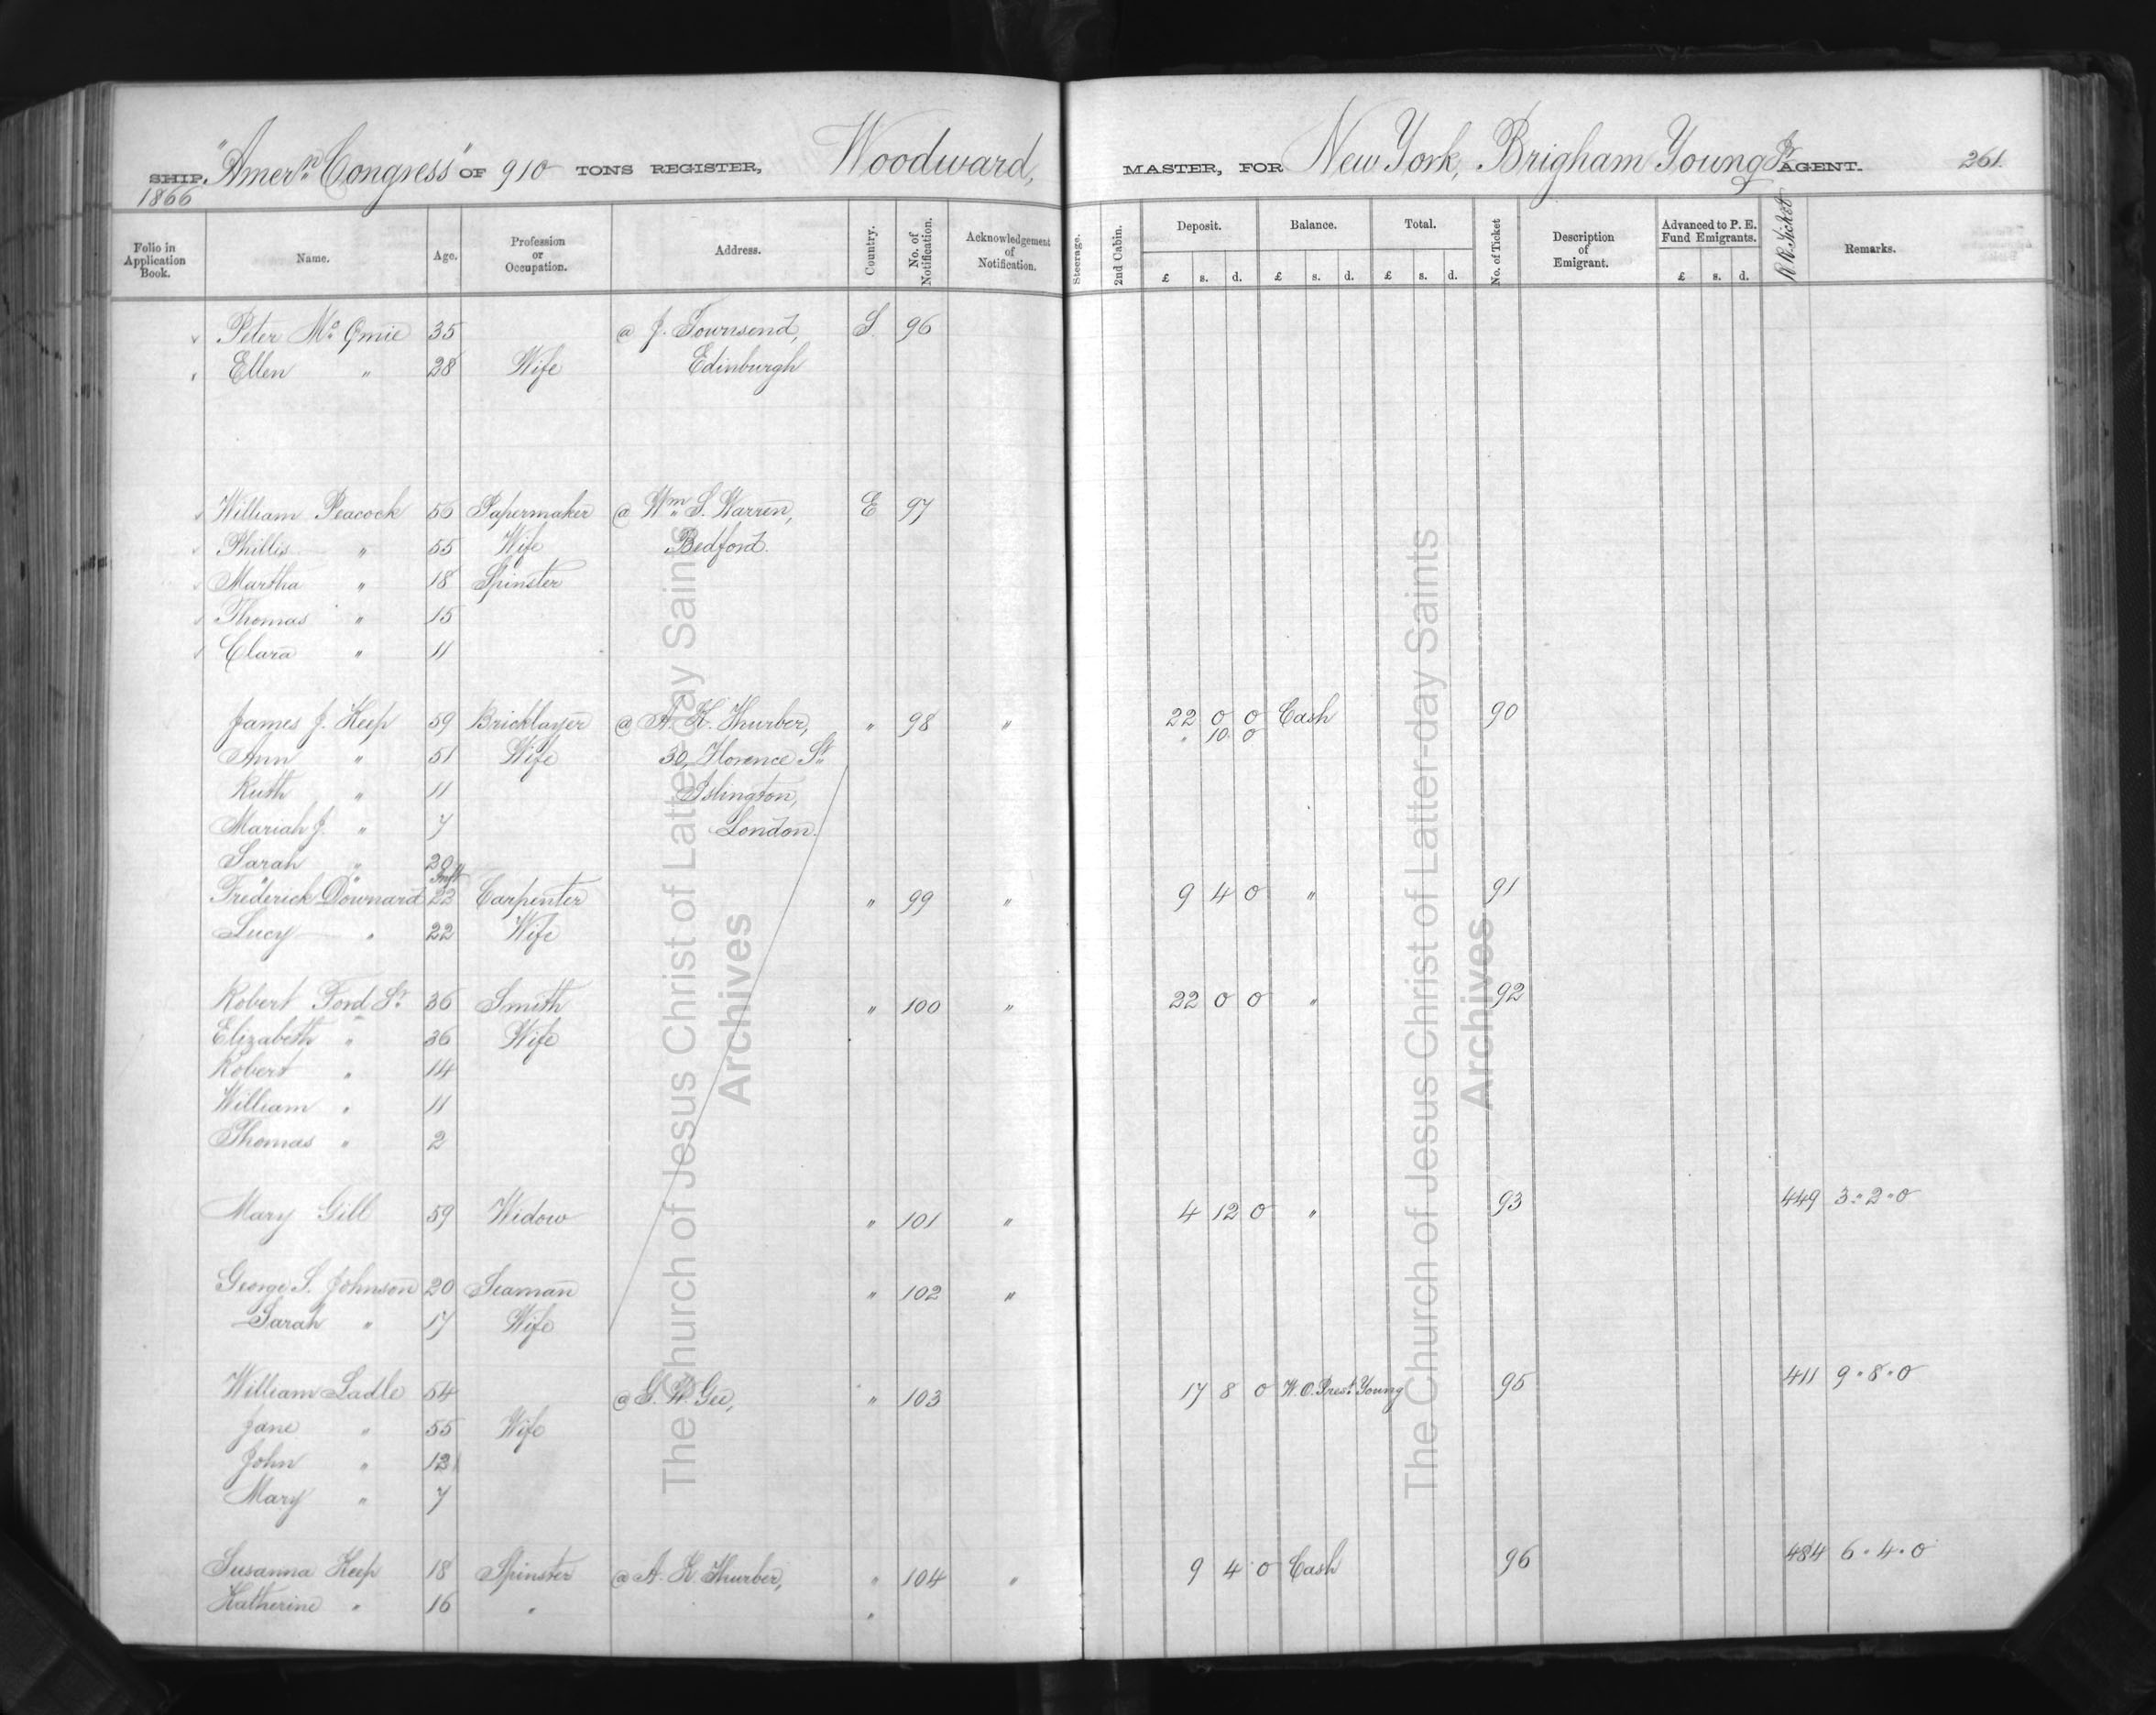 SHIP, "Amern. Congress" OF 910 TONS REGISTER, Woodward, MASTER, FOR New York, Brigham Young Jr AGENT. 261.
1866
Folio in Application Book. Name. Age. Profession or Occupation. Address. Country. No. of Notification. Acknowledgement of Notification. Steerage. 2nd Cabin. Deposit. £ s. d. Balance. £ s. d. Total. £ s. d. No. of Ticket Description of Emigrant. Advanced to P. E. Fund Emigrants. £ s. d. R R Ticket Remarks.
Peter Mc Omie 35 @ J. Townsend, S. 96
Ellen " 28 Wife Edinburgh
William Peacock 56 Papermaker @ Wm. S. Warren, E 97
Phillis " 55 Wife Bedford.
Martha " 18 Spinster
Thomas " 15
Clara " 11
James J. Keep 59 Bricklayer @ A. K. Thurber, " 98 " 22 0 0 Cash 90
" 10 0
Ann " 51 Wife 30, Florence St.
Ruth " 11 Islington,
Mariah J. " 7 London.
Sarah " 20
" " Inft
Frederick Downard 22 Carpenter " 99 " 9 4 0 " 91
Lucy " 22 Wife
Robert Ford Sr. 36 Smith " 100 " 22 0 0 " 92
Elizabeth " 36 Wife
Robert " 14
William " 11
Thomas " 2
Mary Gill 59 Widow " 101 " 4 12 0 " 93 449 3 " 2 " 0
George S. Johnson 20 Seaman " 102 "
Sarah " 17 Wife
William Ladle 54 @ G. W. Gee, " 103 17 8 0 W. O. Prest. Young 95 411 9 " 8 " 0
Jane " 55 Wife
John " 12
Mary " 7
Susanna Keep 18 Spinster @ A. K. Thurber, " 104 " 9 4 0 Cash 96 484 6 " 4 " 0
Katherine " 16 " "
The Church of Jesus Christ of Latter-day Saints
Archives
The Church of Jesus Christ of Latter-day Saints
Archives